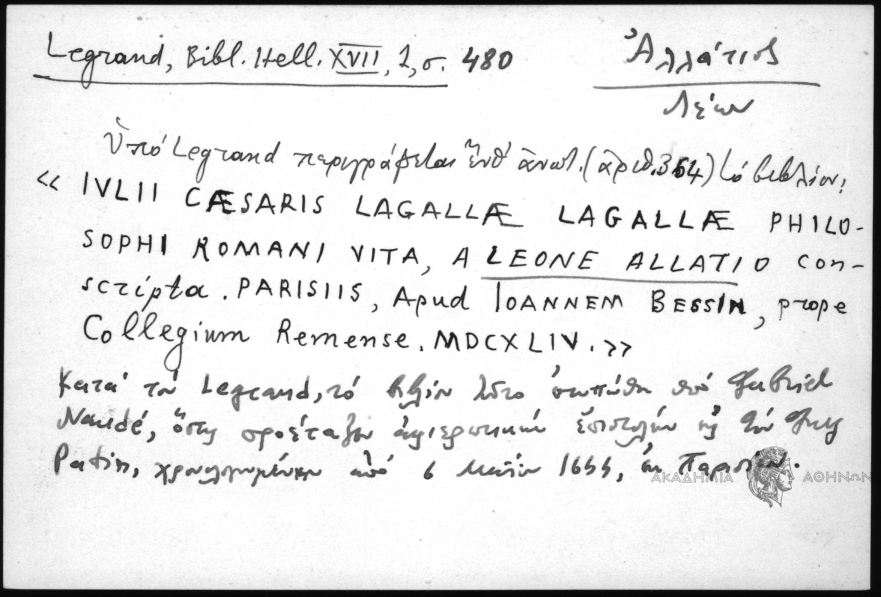 Legrand, Bibl. Hell. XVII, 2, σ. 480
Ἀλλάτιος
Λέων
Ὑπό Legrand περιγράφεται ὑπ' ἀριθ. 364) τό βιβλίον:
« IVLII CÆSARIS LAGALLÆ LAGALLÆ PHILO-
SOPHI ROMANI VITA, A LEONE ALLATIO con-
scripta. PARISIIS, Apud IOANNEM BESSIN, prope
Collegium Remense. MDCXLIV. »
Κατά τόν Legrand, τό βιβλίον τοῦτο ἐτυπώθη ὑπό Gabriel
Naudé, ὅστις προέταξεν ἀφιερωτικήν ἐπιστολήν εἰς τόν Guy
Patin, χρονολογουμένην ἀπό 6 Μαΐου 1644, ἐκ Παρισίων.
ΑΚΑΔΗΜΙΑ ΑΘΗΝΩΝ